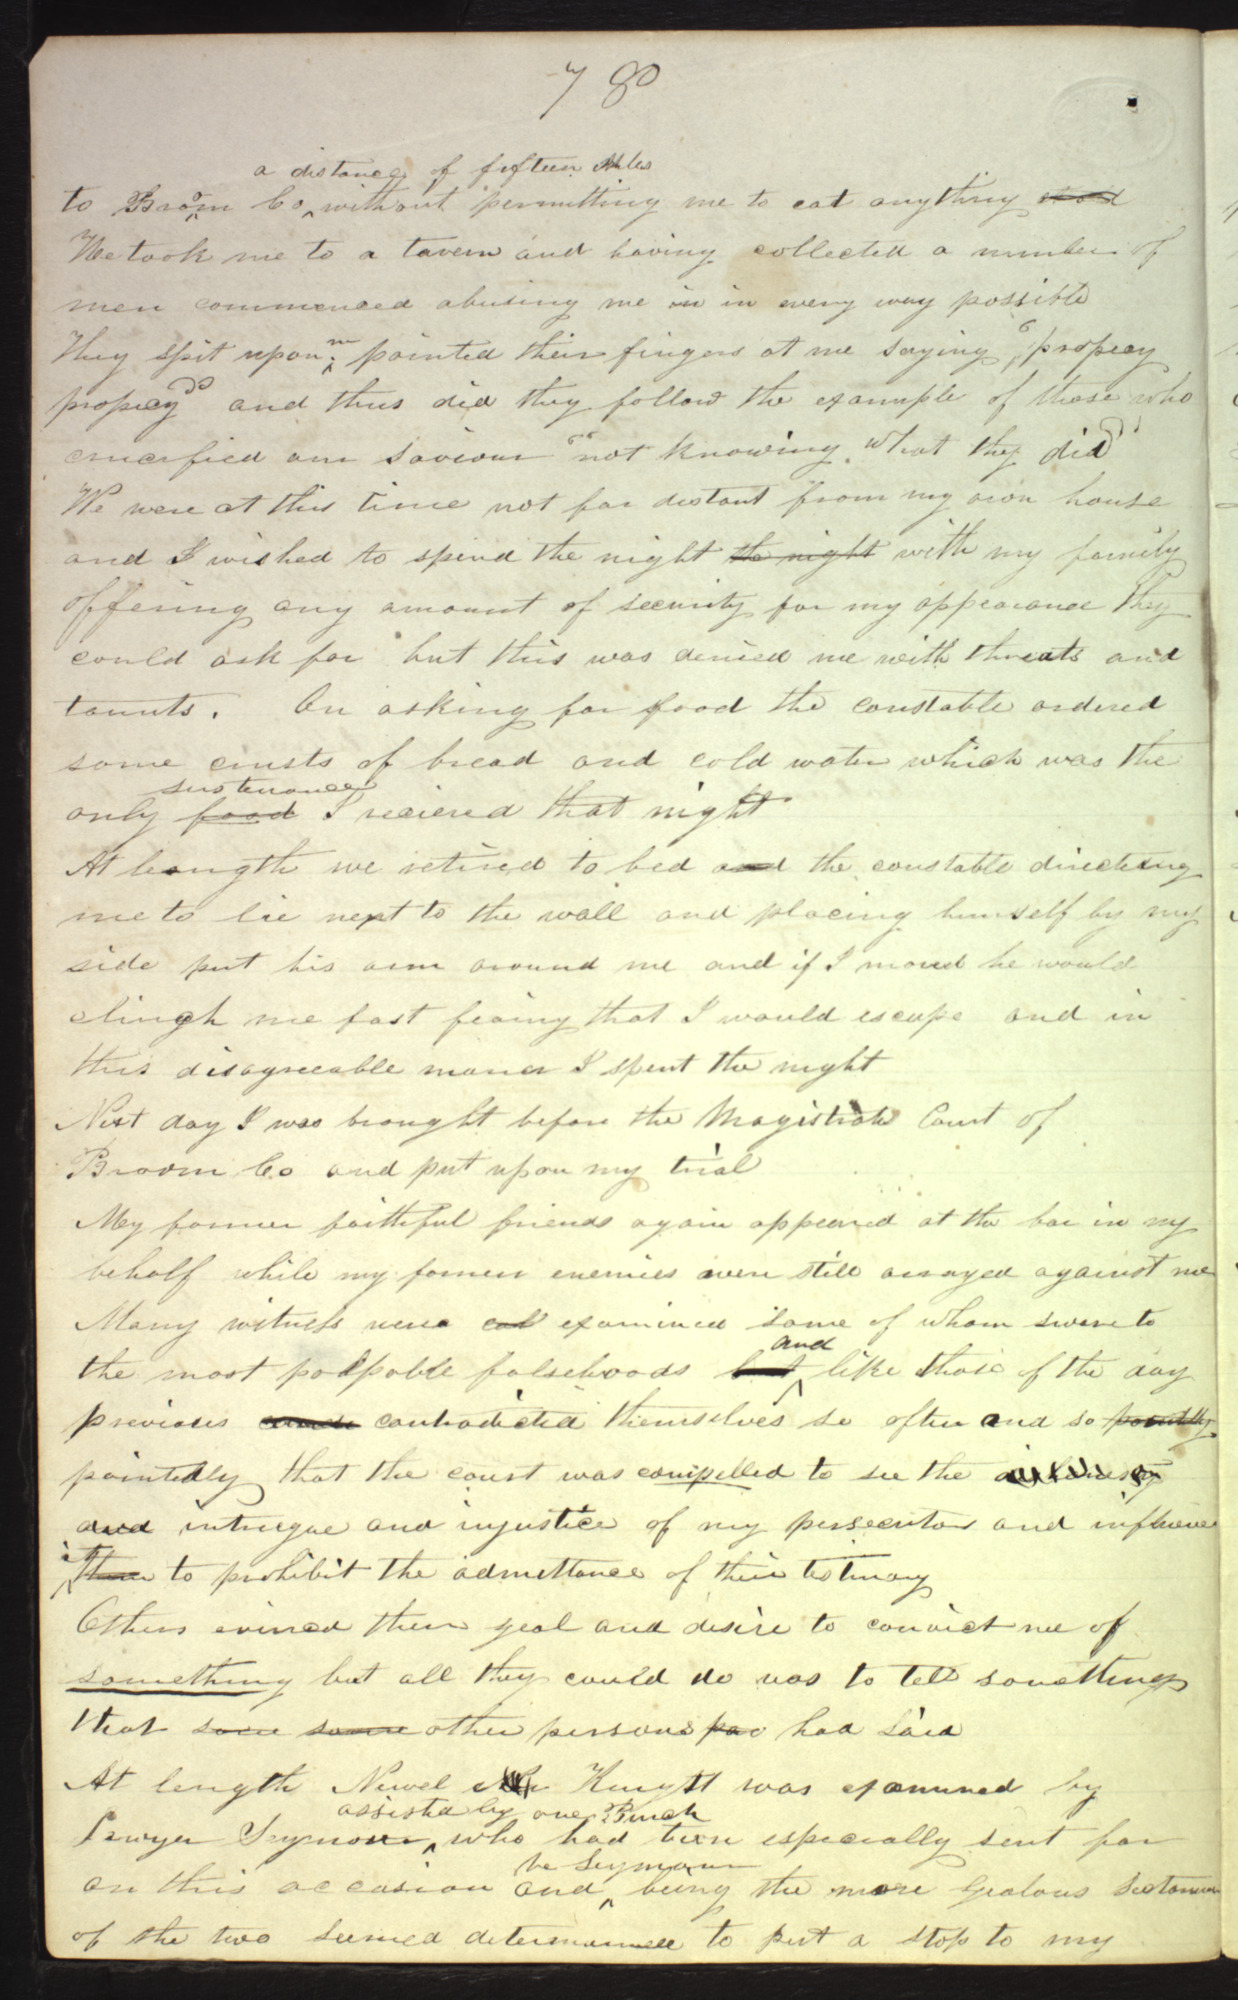 78
a distance of fifteen Miles
to Broom Co without permitting me to eat anything
He took me to a tavern and having collected a number of
men commenced abusing me in in every way possible
They spit upon me pointed their fingers at me saying "propecy
propecy" and thus did they follow the example of those who
crucified our Saviour "not knowing what they did"
We were at this time not far distant from my own house
and I wished to spend the night the night with my family
offering any amount of security for my appearance they
could ask for but this was denied me with threats and
taunts. On asking for food the constable ordered
some crusts of bread and cold water which was the
sustenance
only food I recieved that night
At leangth we retired to bed and the constable directing
me to lie next to the wall and placing himself by my
side put his arm around me and if I moved he would
clingh me fast fearing that I would escape and in
this disagreeable maner I spent the night
Next day I was brought before the Magistrate Court of
Broom Co and put upon my trial
My former faithful friends again appeared at the bar in my
behalf while my former enemies were still arrayed against me
Many witness were cal examined some of whom swore to
and
the most palpable falsehoods but like those of the day
previous contradicted themselves so often and so pointedly
pointedly that the court was compelled to see the
and intriegue and injustice of my persecutors and influence
it
them to prohibit the admittance of their testimony
Others evinced their zeal and desire to convict me of
something but all they could do was to tell something
that some some other persons had said
At length Newel Knight was examined by
assisted by one Burch
Lawyer Seymour who had been especially sent for
he Seymour
on this occasion and being the more zealous Sectarian
of the two seemed determined to put a stop to my